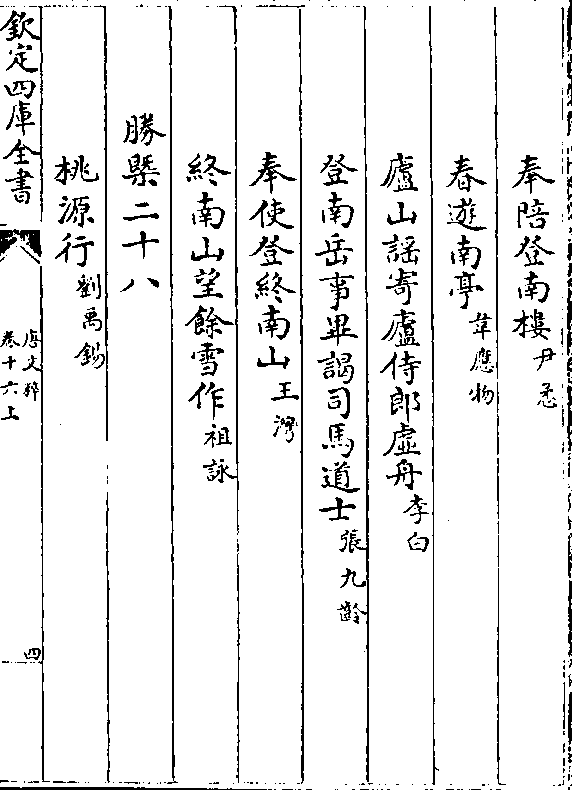 奉陪登南樓 尹懋
春遊南亭 韋應物
廬山謡寄廬侍郎虚舟 李白
登南岳事畢謁司馬道士 張九齡
奉使登終南山 王灣
終南山望餘雪作 祖詠
勝槩二十八
桃源行 劉禹錫
欽定四庫全書
唐文粹
卷十六上
四